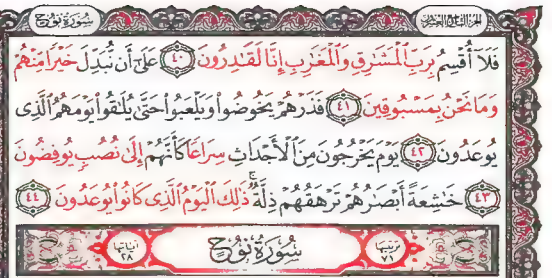 سُورَةُ نُوحٍ الجزء التاسع والعشرون
فَلَآ أُقْسِمُ بِرَبِّ ٱلْمَشَٰرِقِ وَٱلْمَغَٰرِبِ إِنَّا لَقَٰدِرُونَ ٤٠ عَلَىٰٓ أَن نُّبَدِّلَ خَيْرًا مِّنْهُمْ
وَمَا نَحْنُ بِمَسْبُوقِينَ ٤١ فَذَرْهُمْ يَخُوضُوا۟ وَيَلْعَبُوا۟ حَتَّىٰ يُلَٰقُوا۟ يَوْمَهُمُ ٱلَّذِى
يُوعَدُونَ ٤٢ يَوْمَ يَخْرُجُونَ مِنَ ٱلْأَجْدَاثِ سِرَاعًا كَأَنَّهُمْ إِلَىٰ نُصُبٍ يُوفِضُونَ
٤٣ خَٰشِعَةً أَبْصَٰرُهُمْ تَرْهَقُهُمْ ذِلَّةٌ ۚ ذَٰلِكَ ٱلْيَوْمُ ٱلَّذِى كَانُوا۟ يُوعَدُونَ ٤٤
ترتيبها ٧١ سُورَةُ نُوحٍ آياتها ٢٨